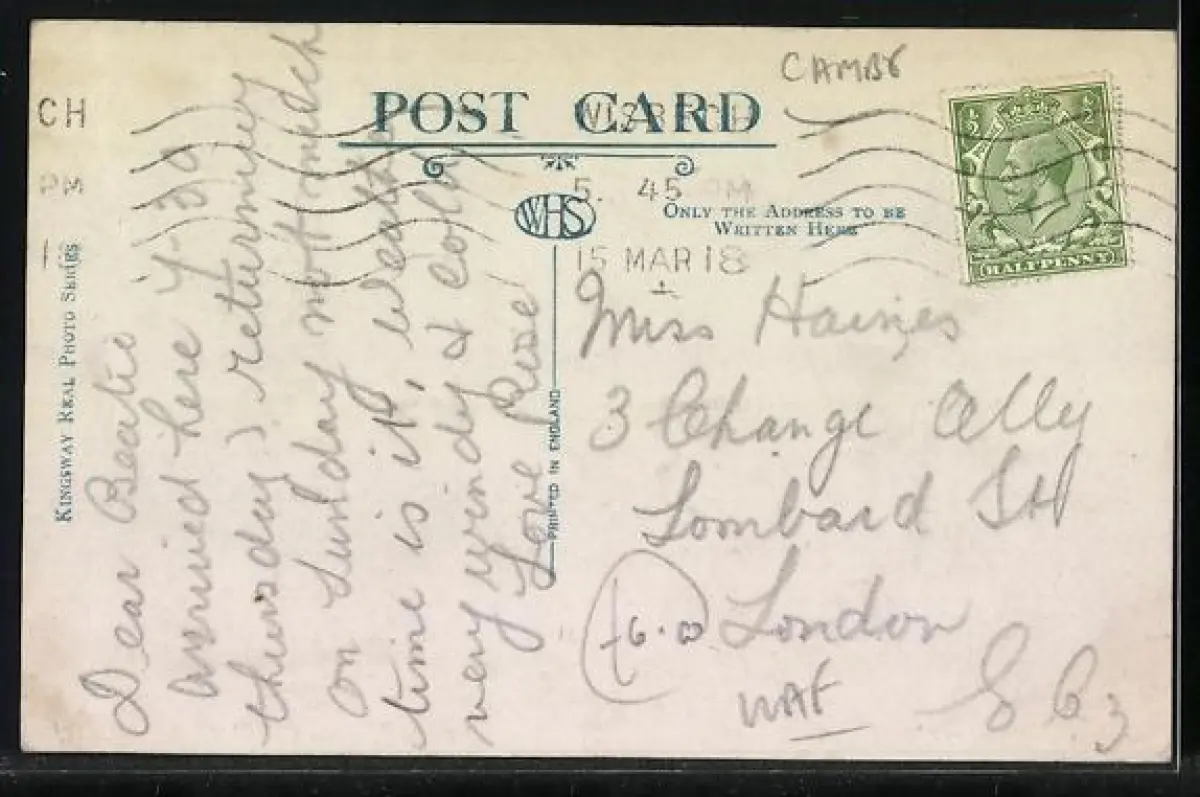 CAMBS
POST CARD
WISBECH
CH
PM
5. 45 PM
15 MAR 18
½ ½
HALFPENNY
WHS
ONLY THE ADDRESS TO BE
WRITTEN HERE
KINGSWAY REAL PHOTO SERIES
PRINTED IN ENGLAND
Dear Beatie
arrived here 4-30
thursday returning
on Sunday not much
time is it, weather
very windy & cold
Love Rose
Miss Haines
3 Change Ally
Lombard St
London
E C 3